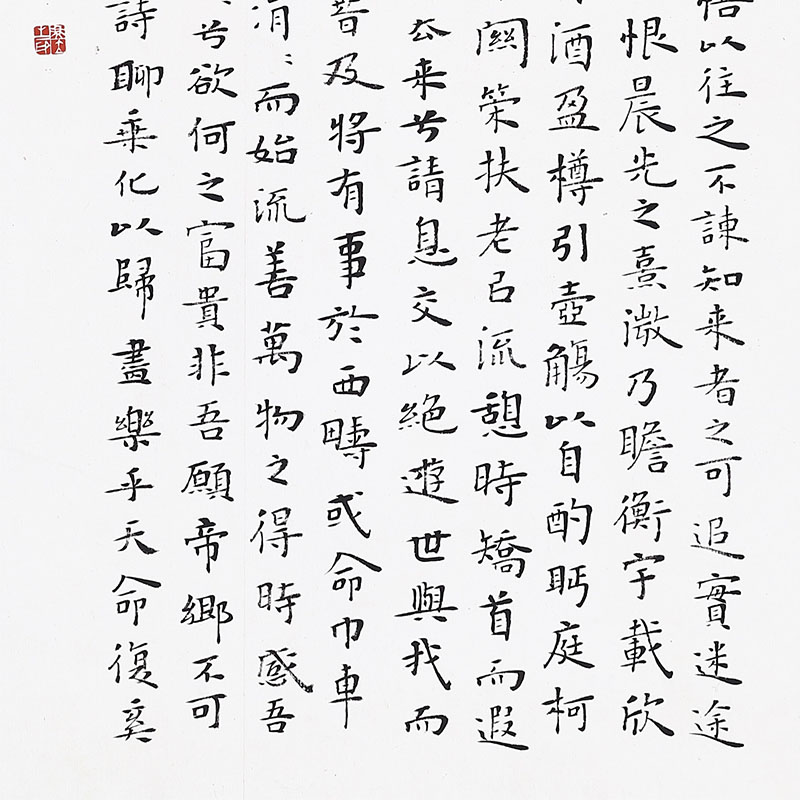 悟以往之不諫知来者之可追實迷途
恨晨光之熹微乃瞻衡宇載欣
酒盈樽引壺觴以自酌眄庭柯
關策扶老以流憩時矯首而遐
去来兮請息交以絶遊世與我而
暮及将有事於西疇或命巾車
涓〻而始流善萬物之得時感吾
兮欲何之富貴非吾願帝鄉不可
詩聊乘化以歸盡樂乎天命復奚